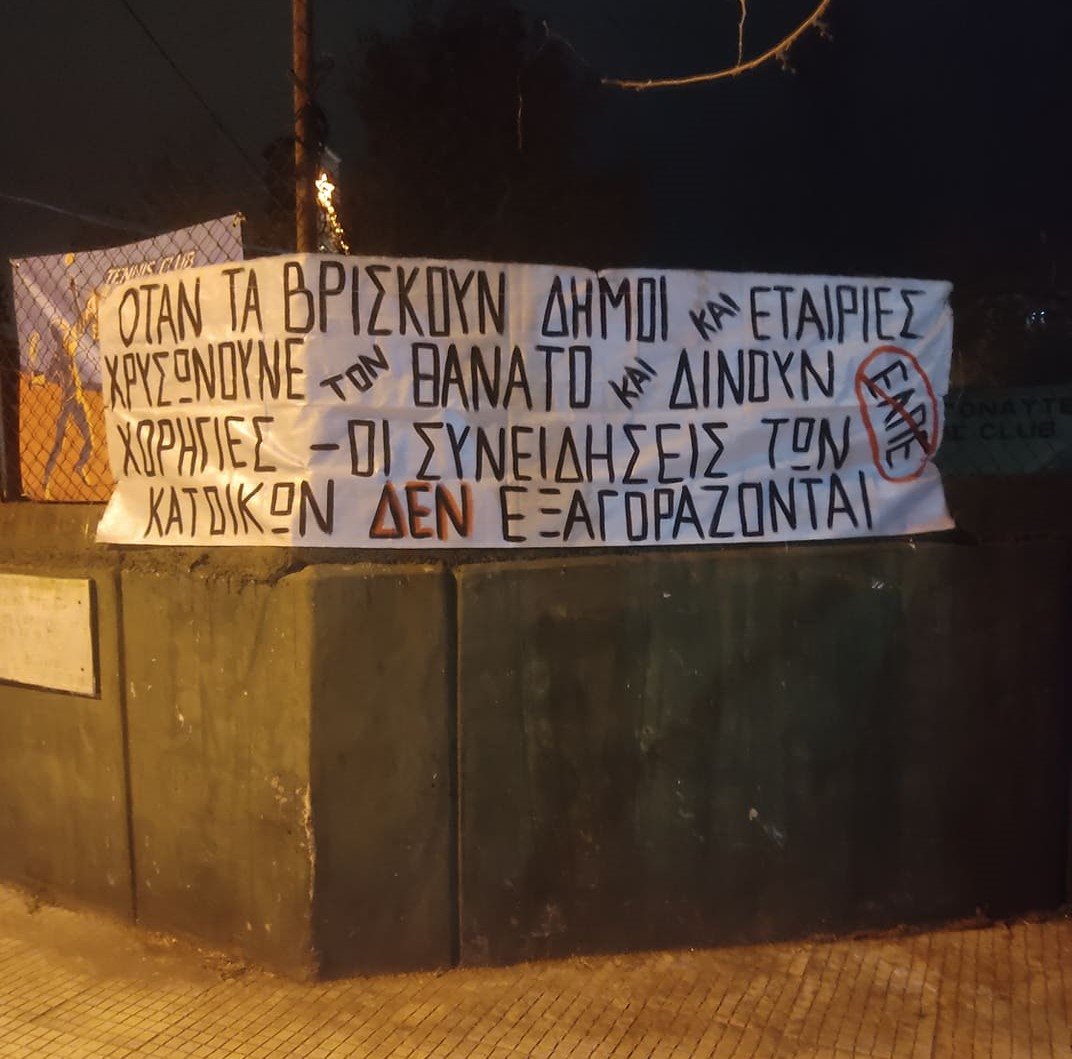 TENNIS CLUB
ΟΤΑΝ ΤΑ ΒΡΙΣΚΟΥΝ ΔΗΜΟΙ ΚΑΙ ΕΤΑΙΡΙΕΣ
ΧΡΥΣΩΝΟΥΝΕ ΤΟΝ ΘΑΝΑΤΟ ΚΑΙ ΔΙΝΟΥΝ
ΧΟΡΗΓΙΕΣ - ΟΙ ΣΥΝΕΙΔΗΣΕΙΣ ΤΩΝ
ΚΑΤΟΙΚΩΝ ΔΕΝ ΕΞΑΓΟΡΑΖΟΝΤΑΙ
ΕΛΠΕ
CLUB